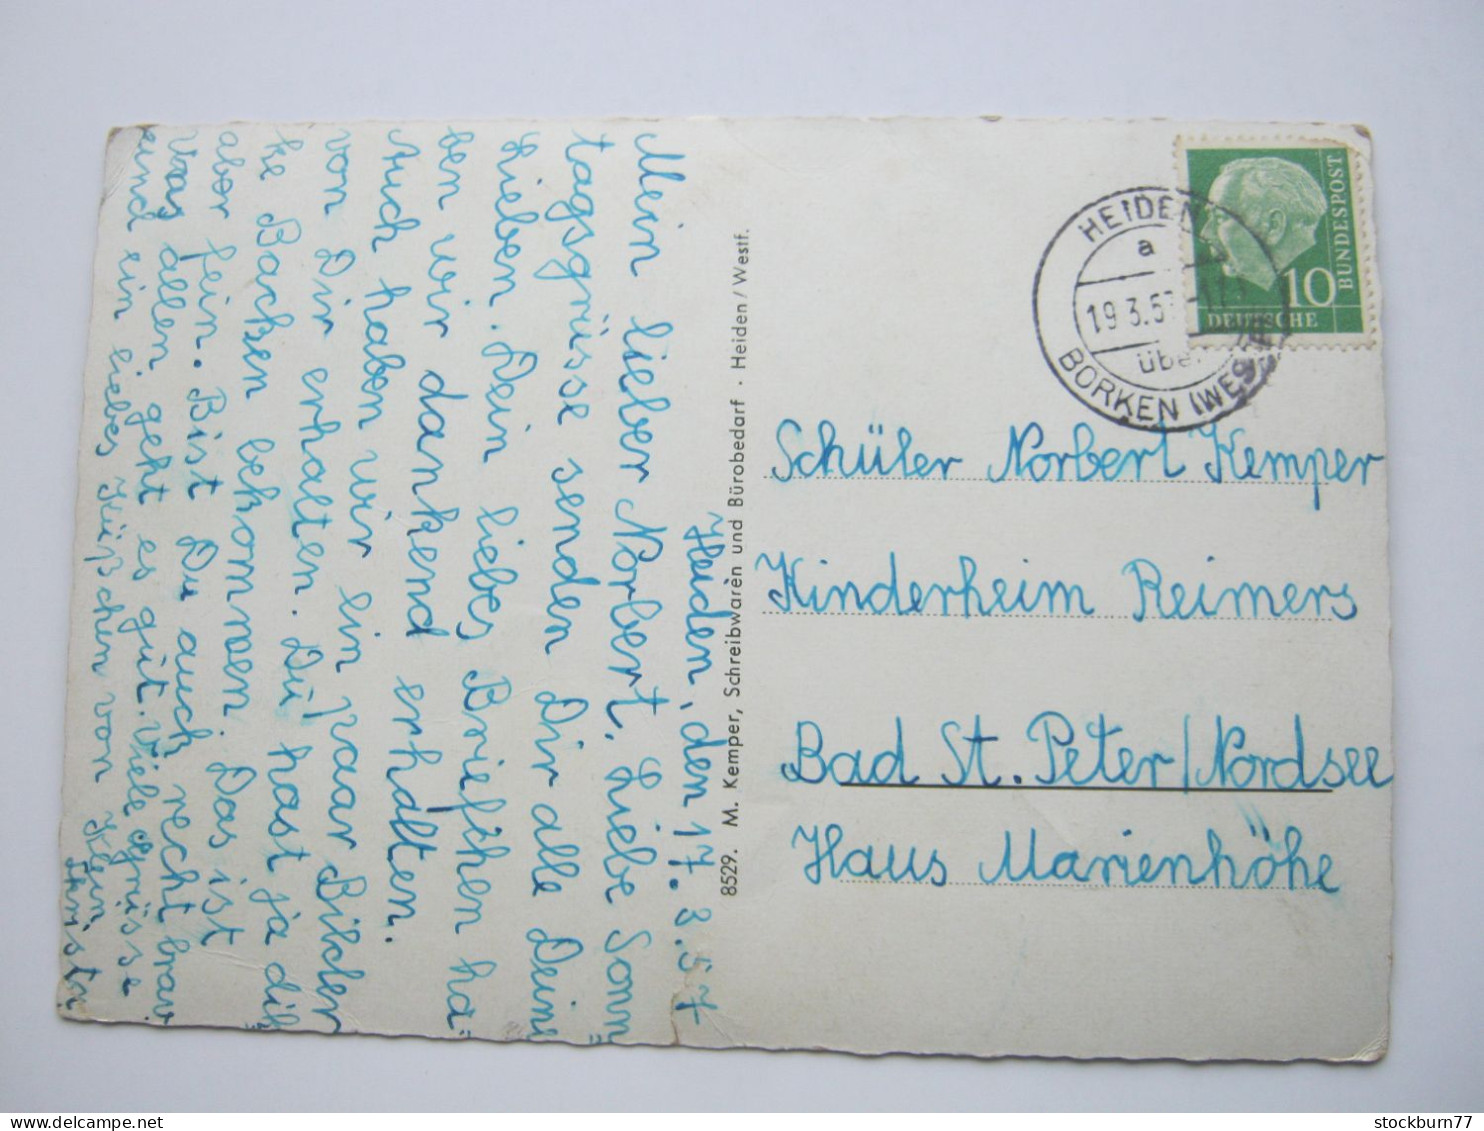 Heiden, den 17. 3. 57
Mein lieber Norbert. Liebe Sonn=
tagsgrüsse senden Dir alle Deine
Lieben. Dein liebes Briefchen ha=
ben wir dankend erhalten.
Auch haben wir ein paar Bilder
von Dir erhalten. Du hast ja dik=
ke Backen bekommen. Das ist
aber fein. Bist Du auch recht brav
uns allen geht es gut. Viele Grüsse
und ein liebes Küßchen von Klein
Christin
8529. M. Kemper, Schreibwaren und Bürobedarf · Heiden / Westf.
HEIDEN
a
19.3.57
über
BORKEN (WESTF)
BUNDESPOST
10
DEUTSCHE
Schüler Norbert Kemper
Kinderheim Reimers
Bad St. Peter/Nordsee
Haus Marienhöhe
stockburn77